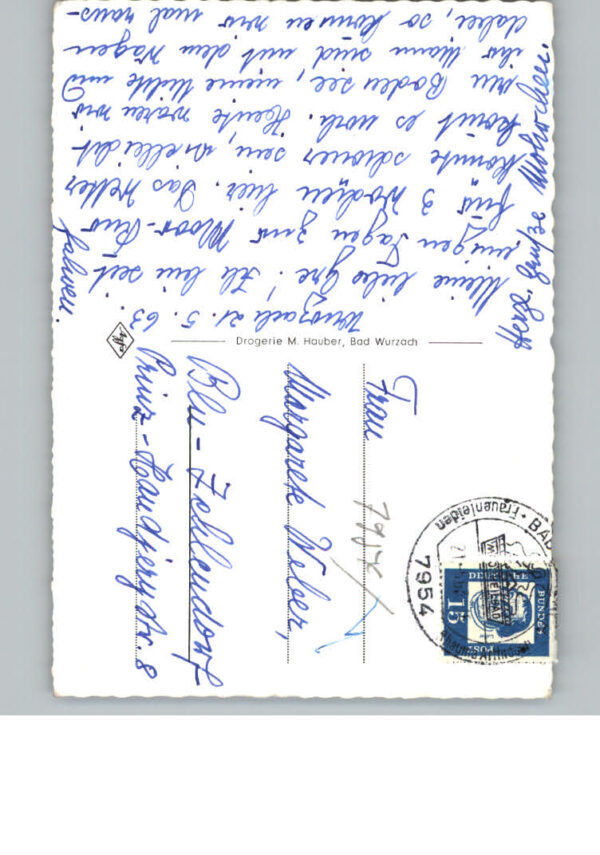 Wurzach 21. 5. 63
Meine liebe Gre! Ich bin seit
einigen Tagen zur Moor-Kur
für 3 Wochen hier. Das Wetter
könnte schöner sein, vielleicht
kommt es noch. Heute waren wir
am Bodensee, meine Nichte und
ihr Mann sind mit dem Wagen
dabei, so kommen wir mal raus-
fahren.
Herzl. Grüße
Drogerie M. Hauber, Bad Wurzach
Agfa
Frau
Margarete Weber,
Bln-Zehlendorf
Prinz-Handjerystr. 8
7954
Frauenleiden
BAD
DEUTSCHE
BUNDES
POST
15